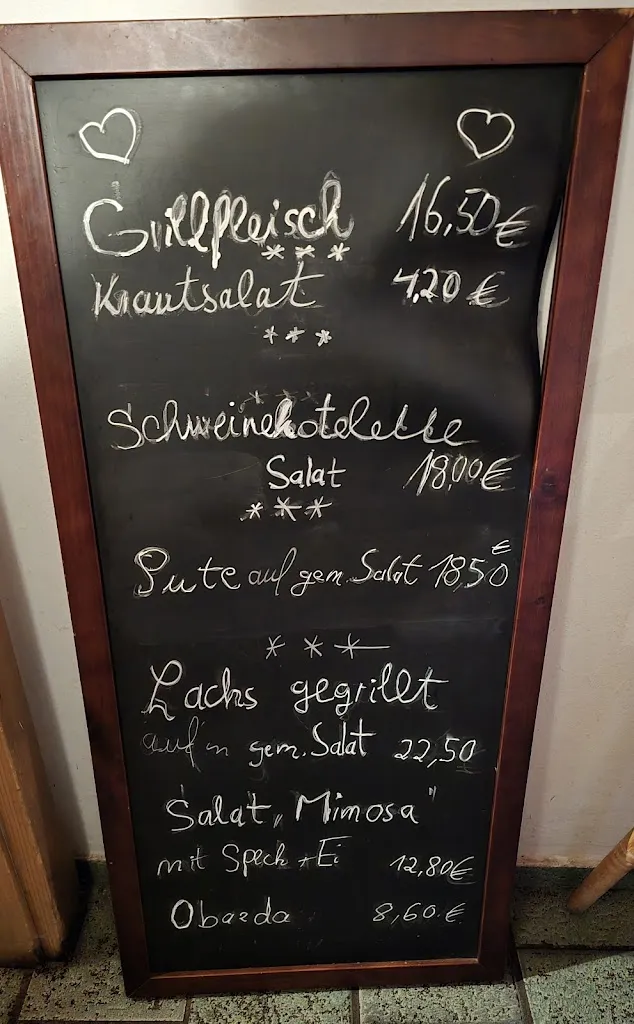 Grillfleisch 16,50 €
***
Krautsalat 4,20 €
***
Schweinekotelette
Salat 18,00 €
***
Pute auf gem. Salat 18,50 €
***
Lachs gegrillt
auf'm gem. Salat 22,50
Salat „Mimosa"
mit Speck + Ei 12,80 €
Obazda 8,60 €